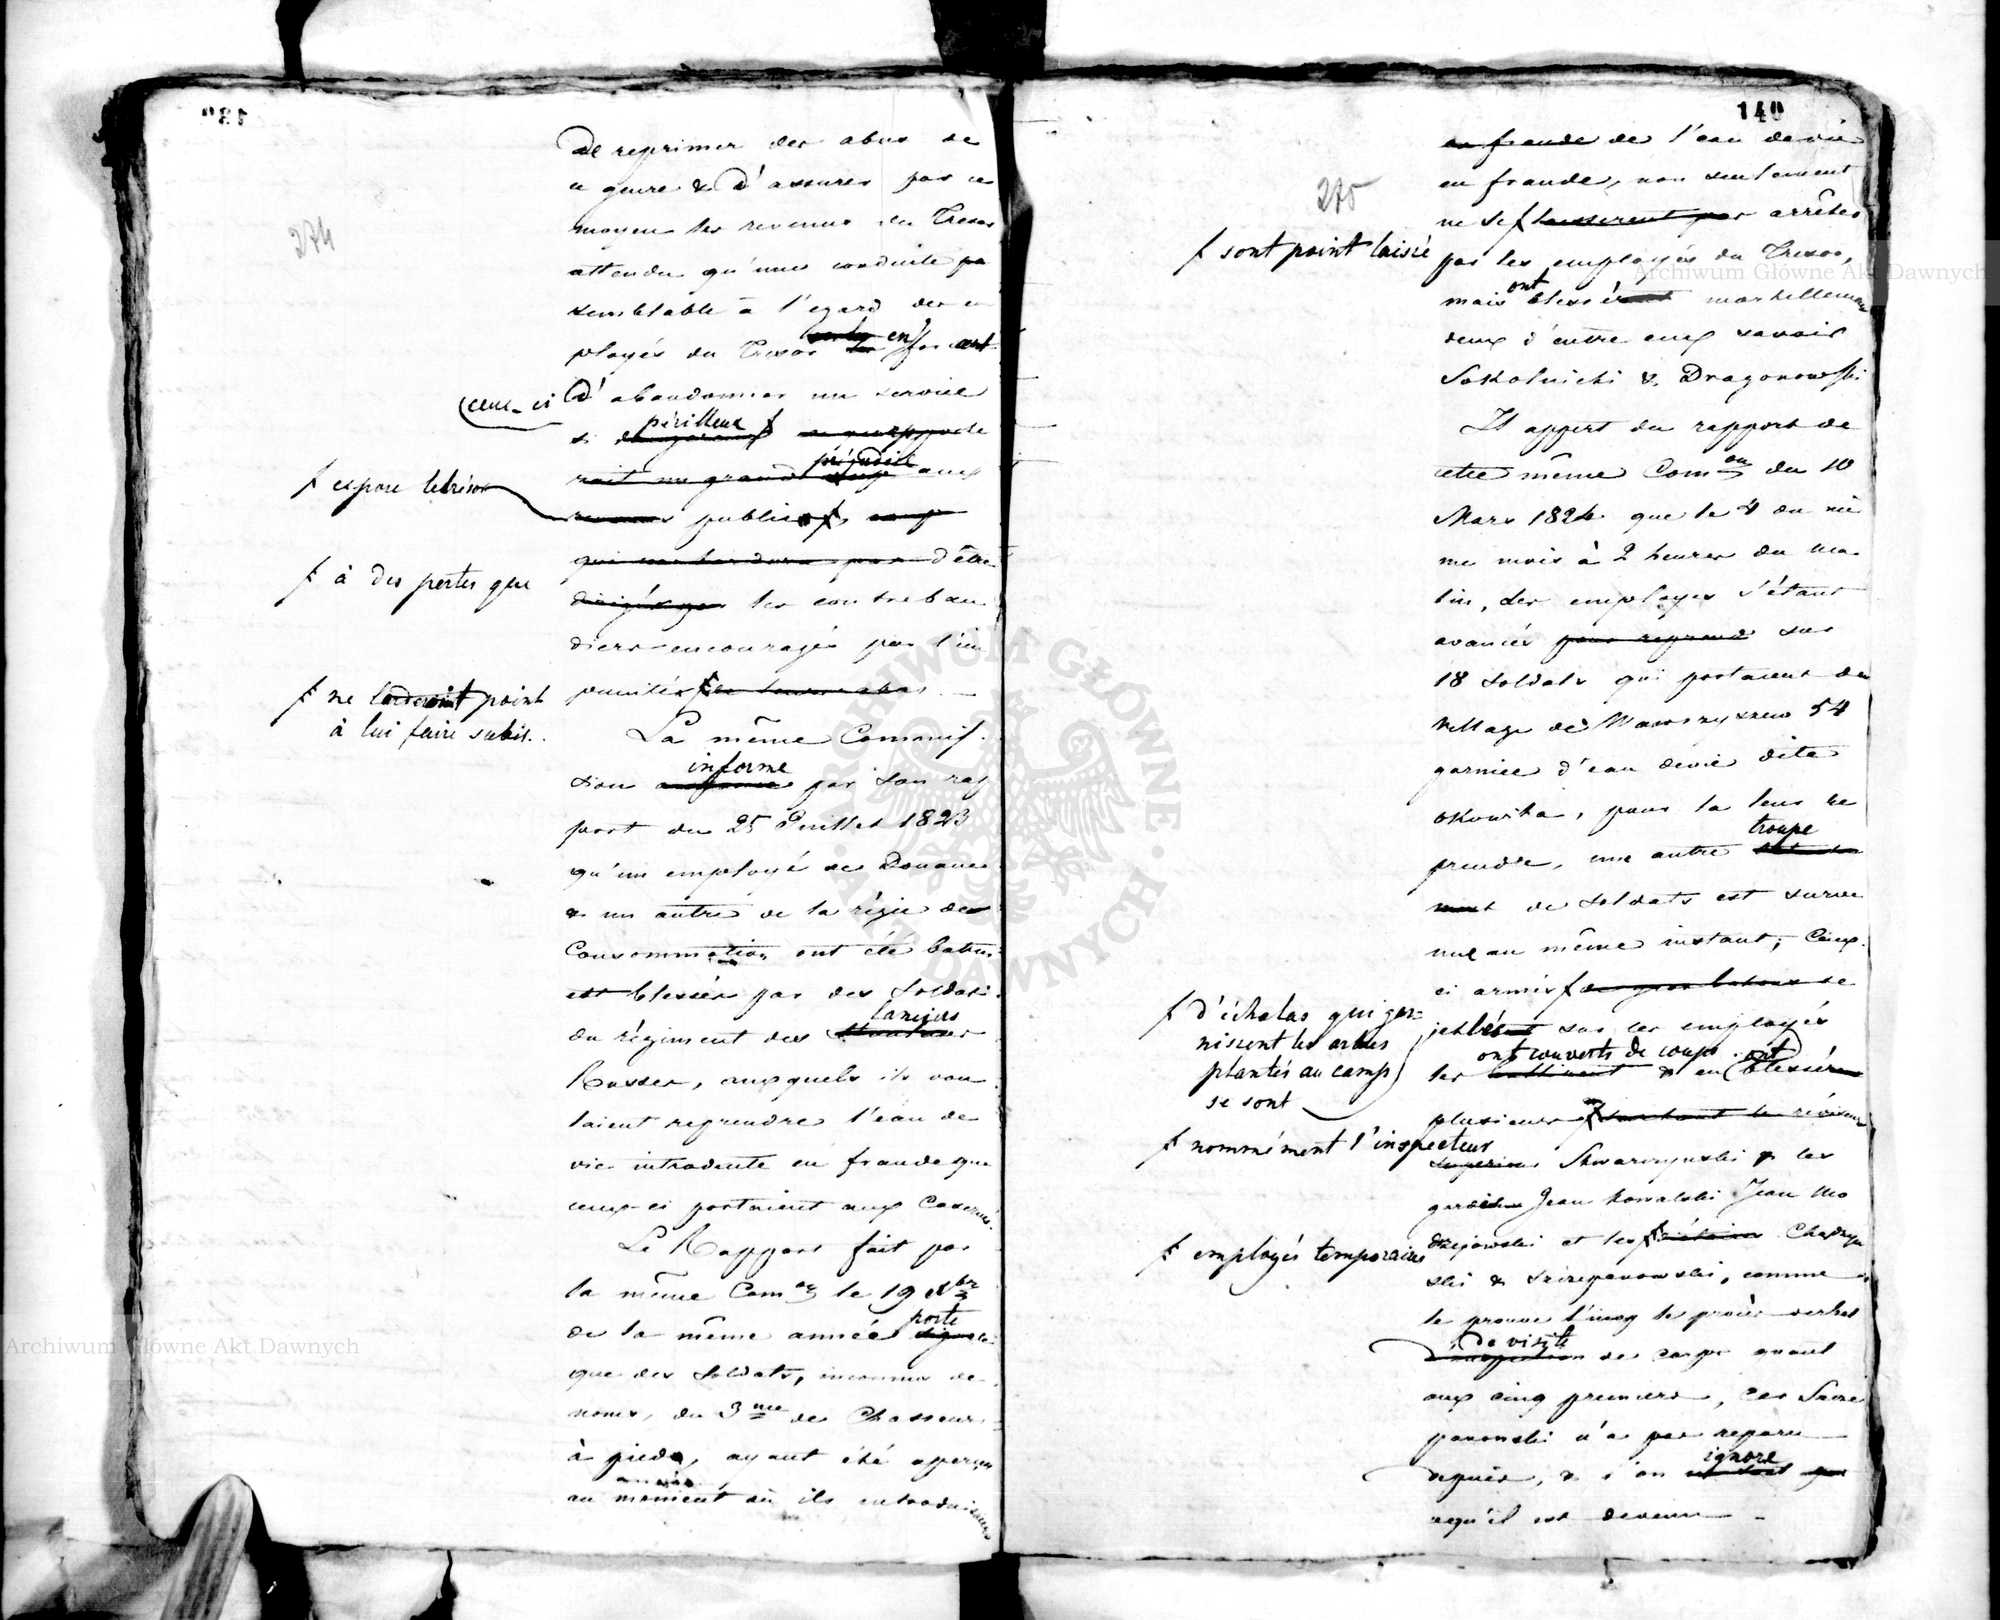 274
de reprimer des abus de
ce genre & d'assurer par ce
moyen les revenus du Tresor
attendu qu'une conduite
semblable à l'egard des em
ployés du Tresor en forçant
ceux-ci
d'abandonner un service
périlleux
si dangereux
préjudice
rait un grand aux
ƒ expose le trésor
revenus public ƒ
ƒ à des pertes que
d'être
dirigés par les contreban
diers encouragés par l'im
punité ƒ
ƒ ne tarderoit point
à lui faire subir.
La même Commis-
informe
sion par son rap
port du 25 Juillet 1823
qu'un employé des Douanes
& un autre de la régie des
Consommation ont été battus
et blessés par des Soldats
lanciers
du régiment des
Russes, auxquels ils vou
laient reprendre l'eau de
vie introduite en fraude que
ceux-ci portaient aux Casernes.
Le Rapport fait par
la même Com.on le 19 Xbre
porte
de la même année
que des Soldats, inconnus de
noms, du 3me des Chasseurs
à pied, ayant été aperçus
au moment où ils introduisaient
140
275
en fraude de l'eau de vie
en fraude, non seulement
ne se ƒ laisserent pas arrêter
ƒ sont point laissé
par les employés du Tresor,
ont
mais blessé mortellement
deux d'entre eux savoir
Sokolnicki & Dragonowski
Il appert du rapport de
cette même Com.on du 10
Mars 1824 que le 4 du mê
me mois à 2 heures du ma
tin, des employés s'étant
avancés pour reprend sur
18 Soldats qui portaient du
village de Wawrzyszew 54
garnice d'eau de vie dite
okowita, pour la leur re
troupe
prendre, une autre
de Soldats est surve
nue au même instant; Ceux-
ci armés ƒ de gros batons se
ƒ d'échalas qui gar=
nissent les arbres
plantés au camp
se sont
jettés sur les employés
ont couverts de coups. ont
les & en blessé
plusieurs ƒ
ƒ nommément l'inspecteur
Skwarczynski & les
gardes Jean Kowalski Jean Mo
drzejowski et les ƒ
ƒ employés temporaires
ski & Szczepanowski, comme
le prouve le procès verbal
de visite
des corps quant
aux cinq premiers, car Szcze
panowski n'a pas reparu
ignore
depuis, & l'on
ce qu'il est devenu